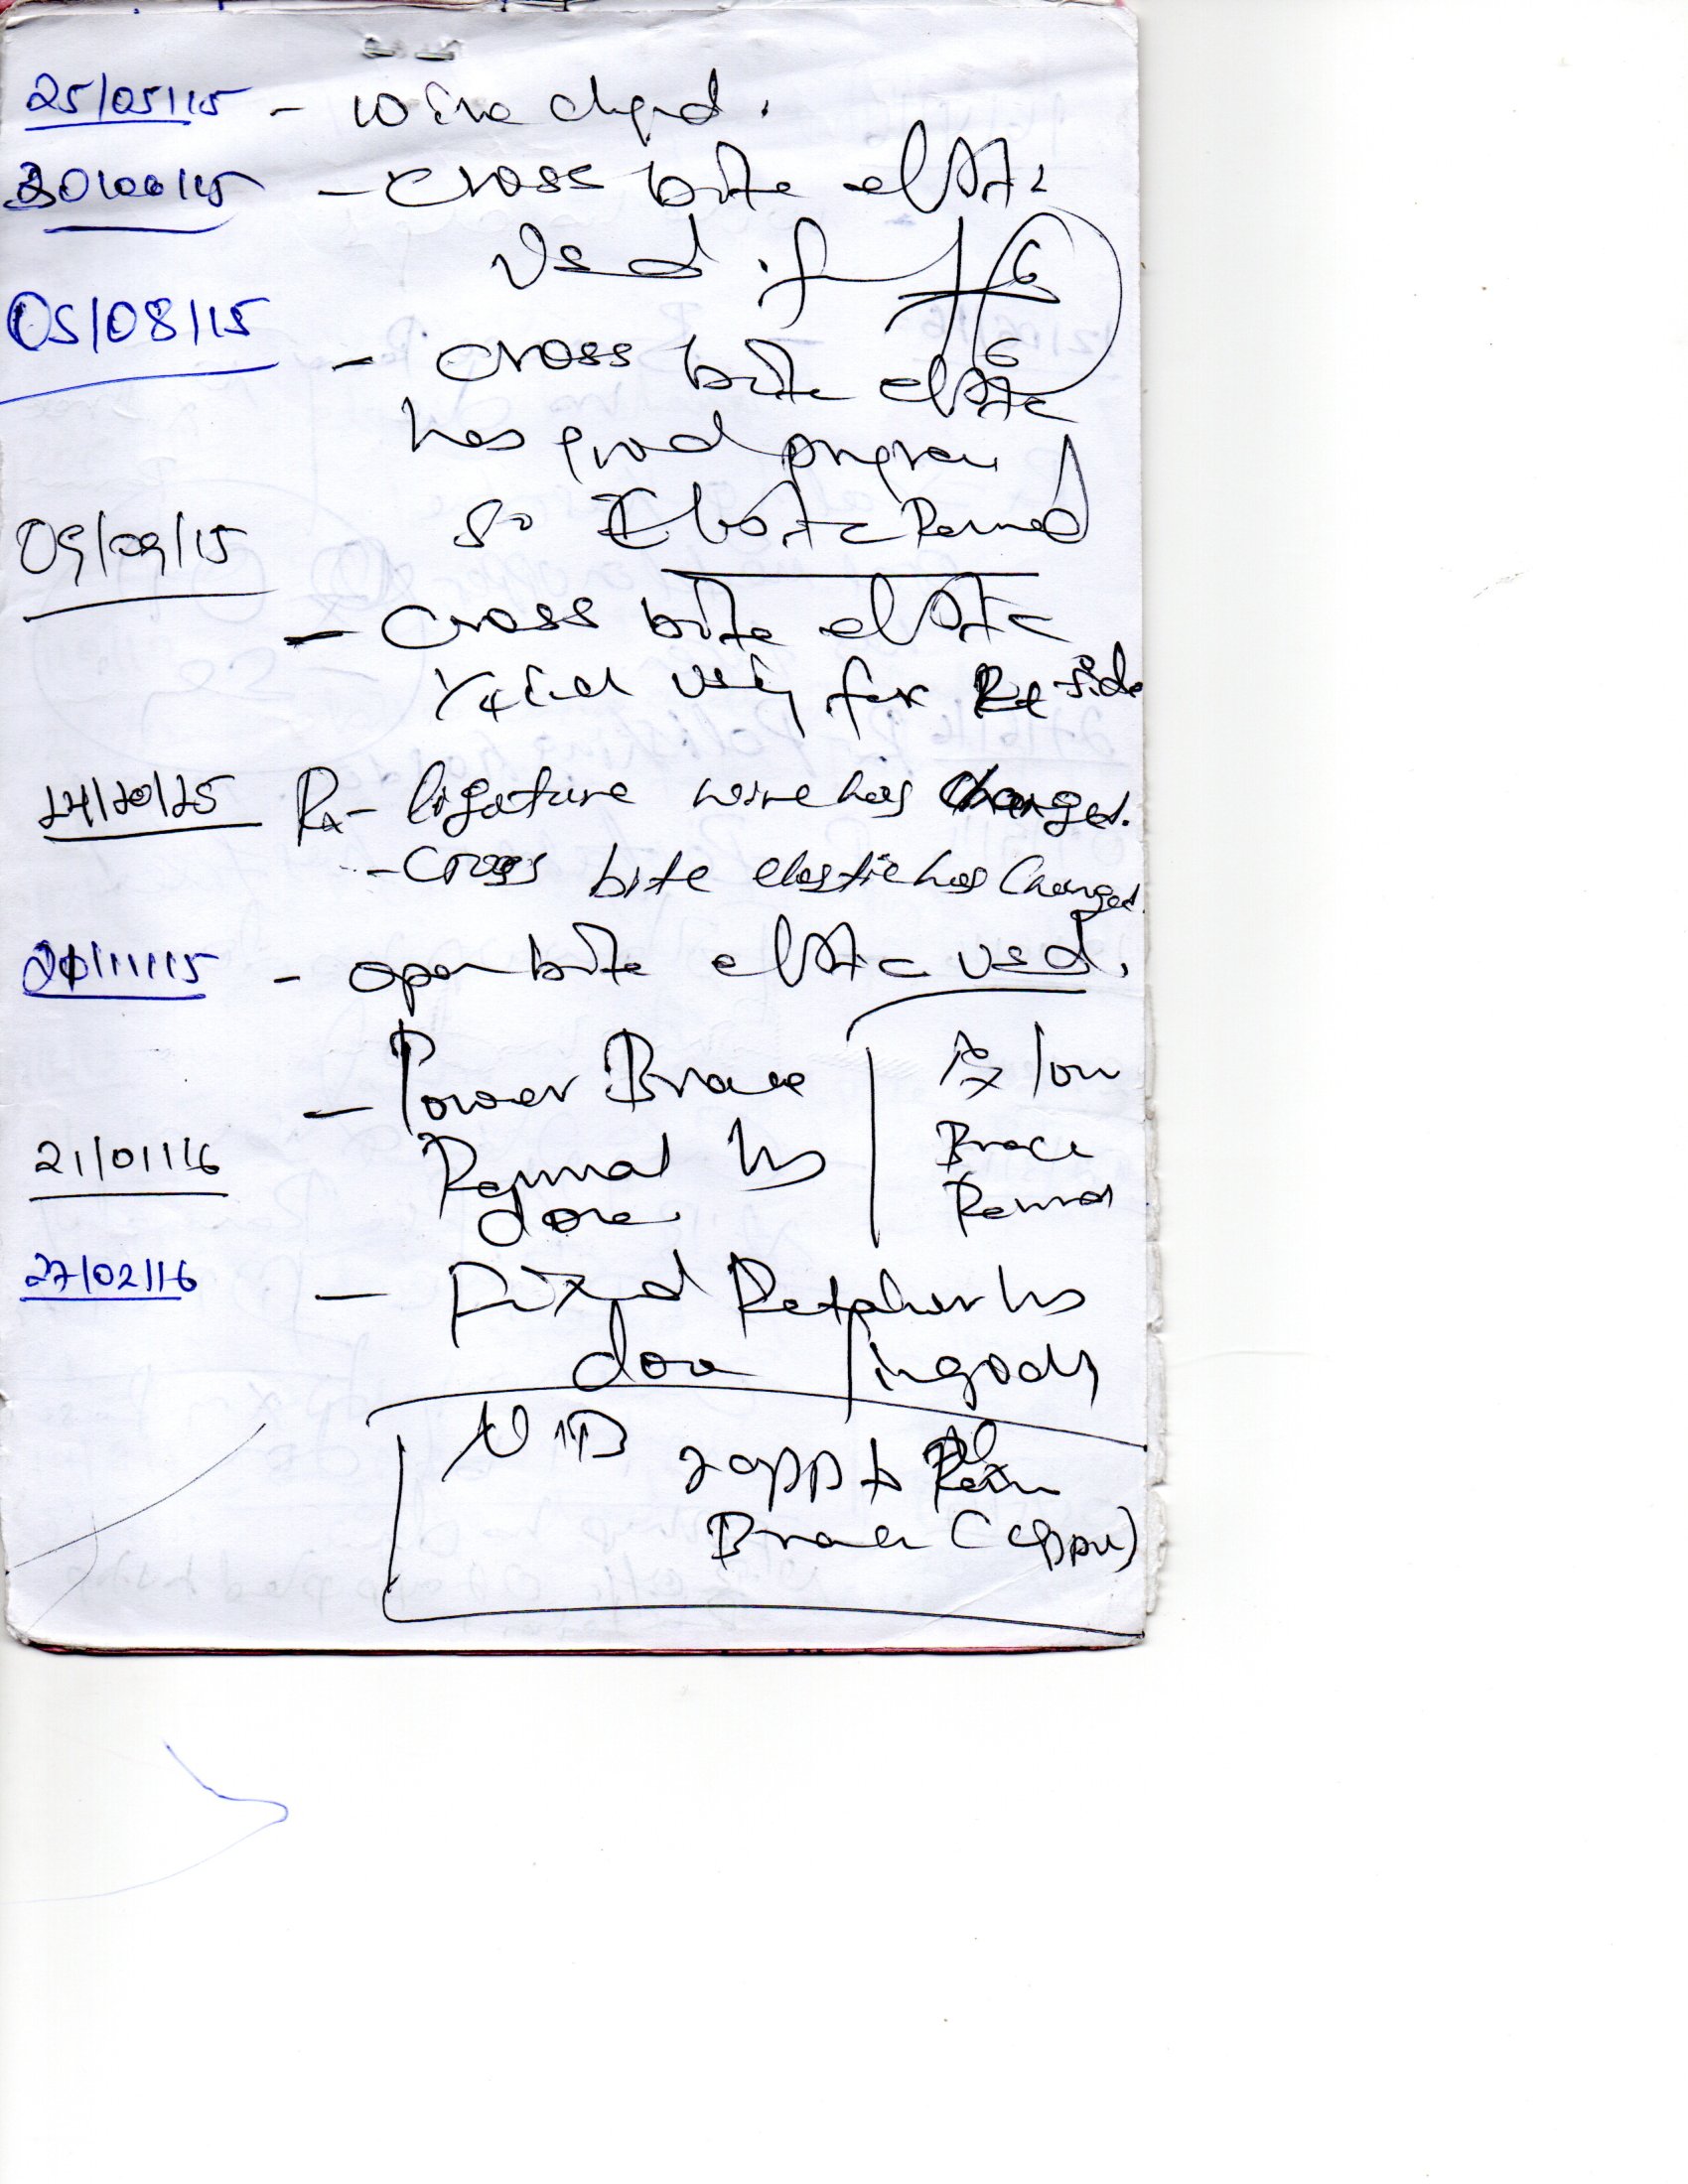 25/05/15 - wire chgd.
30/06/15 - cross bite elastic
used if 6
6
05/08/15 - cross bite elastic
has good progress
so Elastic Removed
09/09/15
- cross bite elastic
1/4 using for Rt side
14/10/15 Rx - ligature wire has changed.
- Cross bite elastic has Changed.
21/11/15 - open bite elastic used.
- Power Brace Rx low
21/01/16 Removal has Brace
done Removal
27/02/16 - Fixed Retainer has
done lingually
NB 2 app to
Braces (upper)